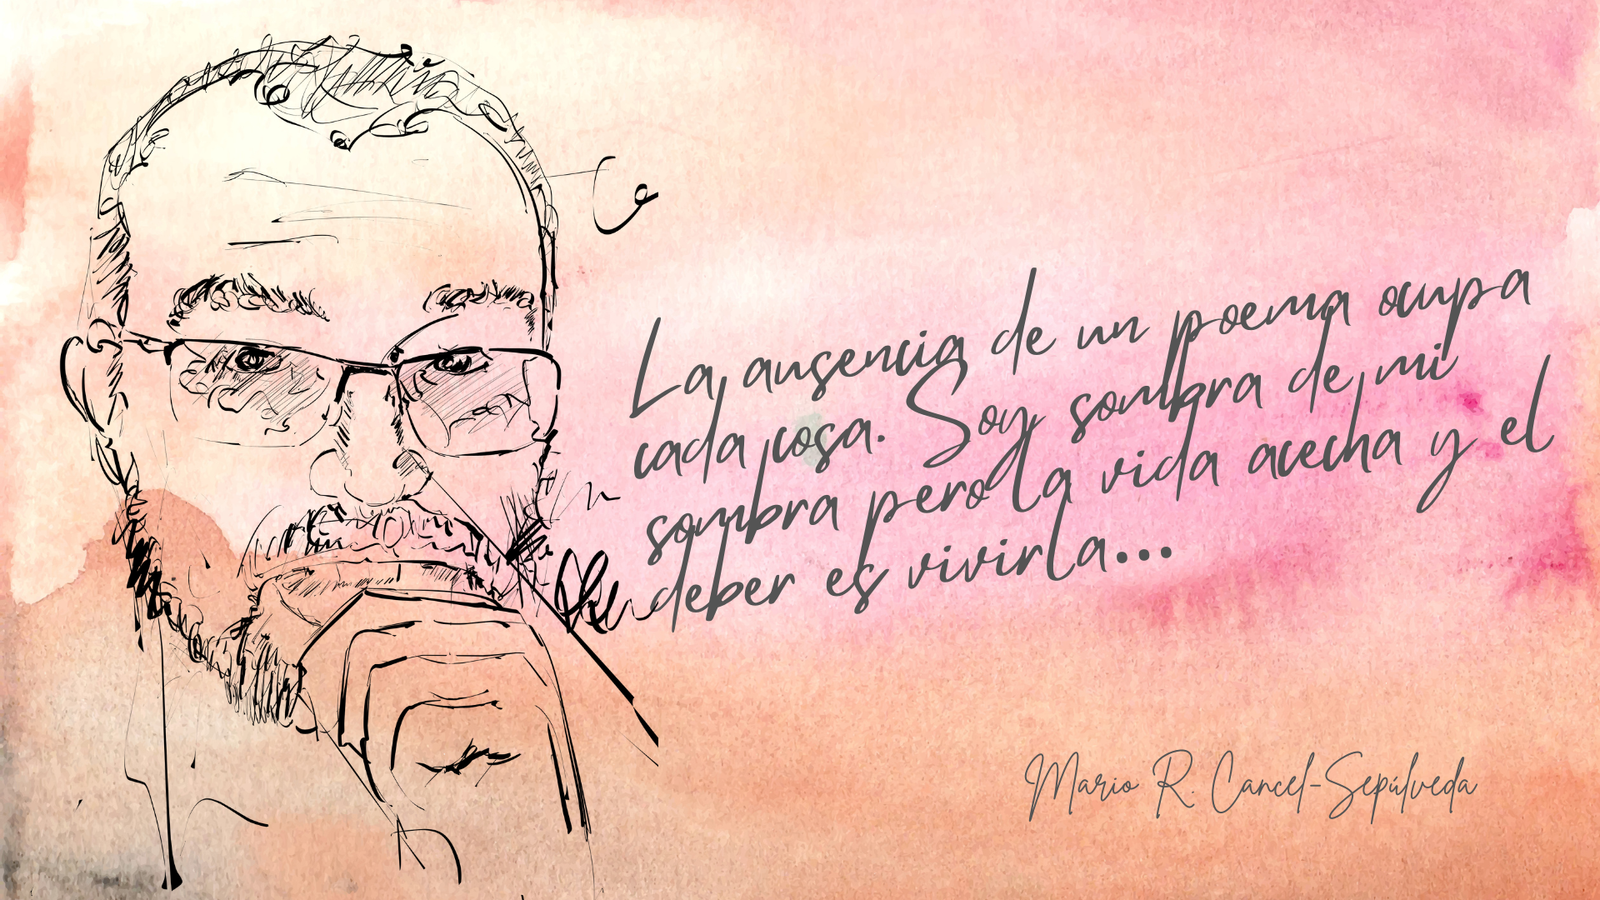 La ausencia de un poema ocupa
cada cosa. Soy sombra de mi
sombra pero la vida acecha y el
deber es vivirla...
Mario R. Cancel-Sepúlveda